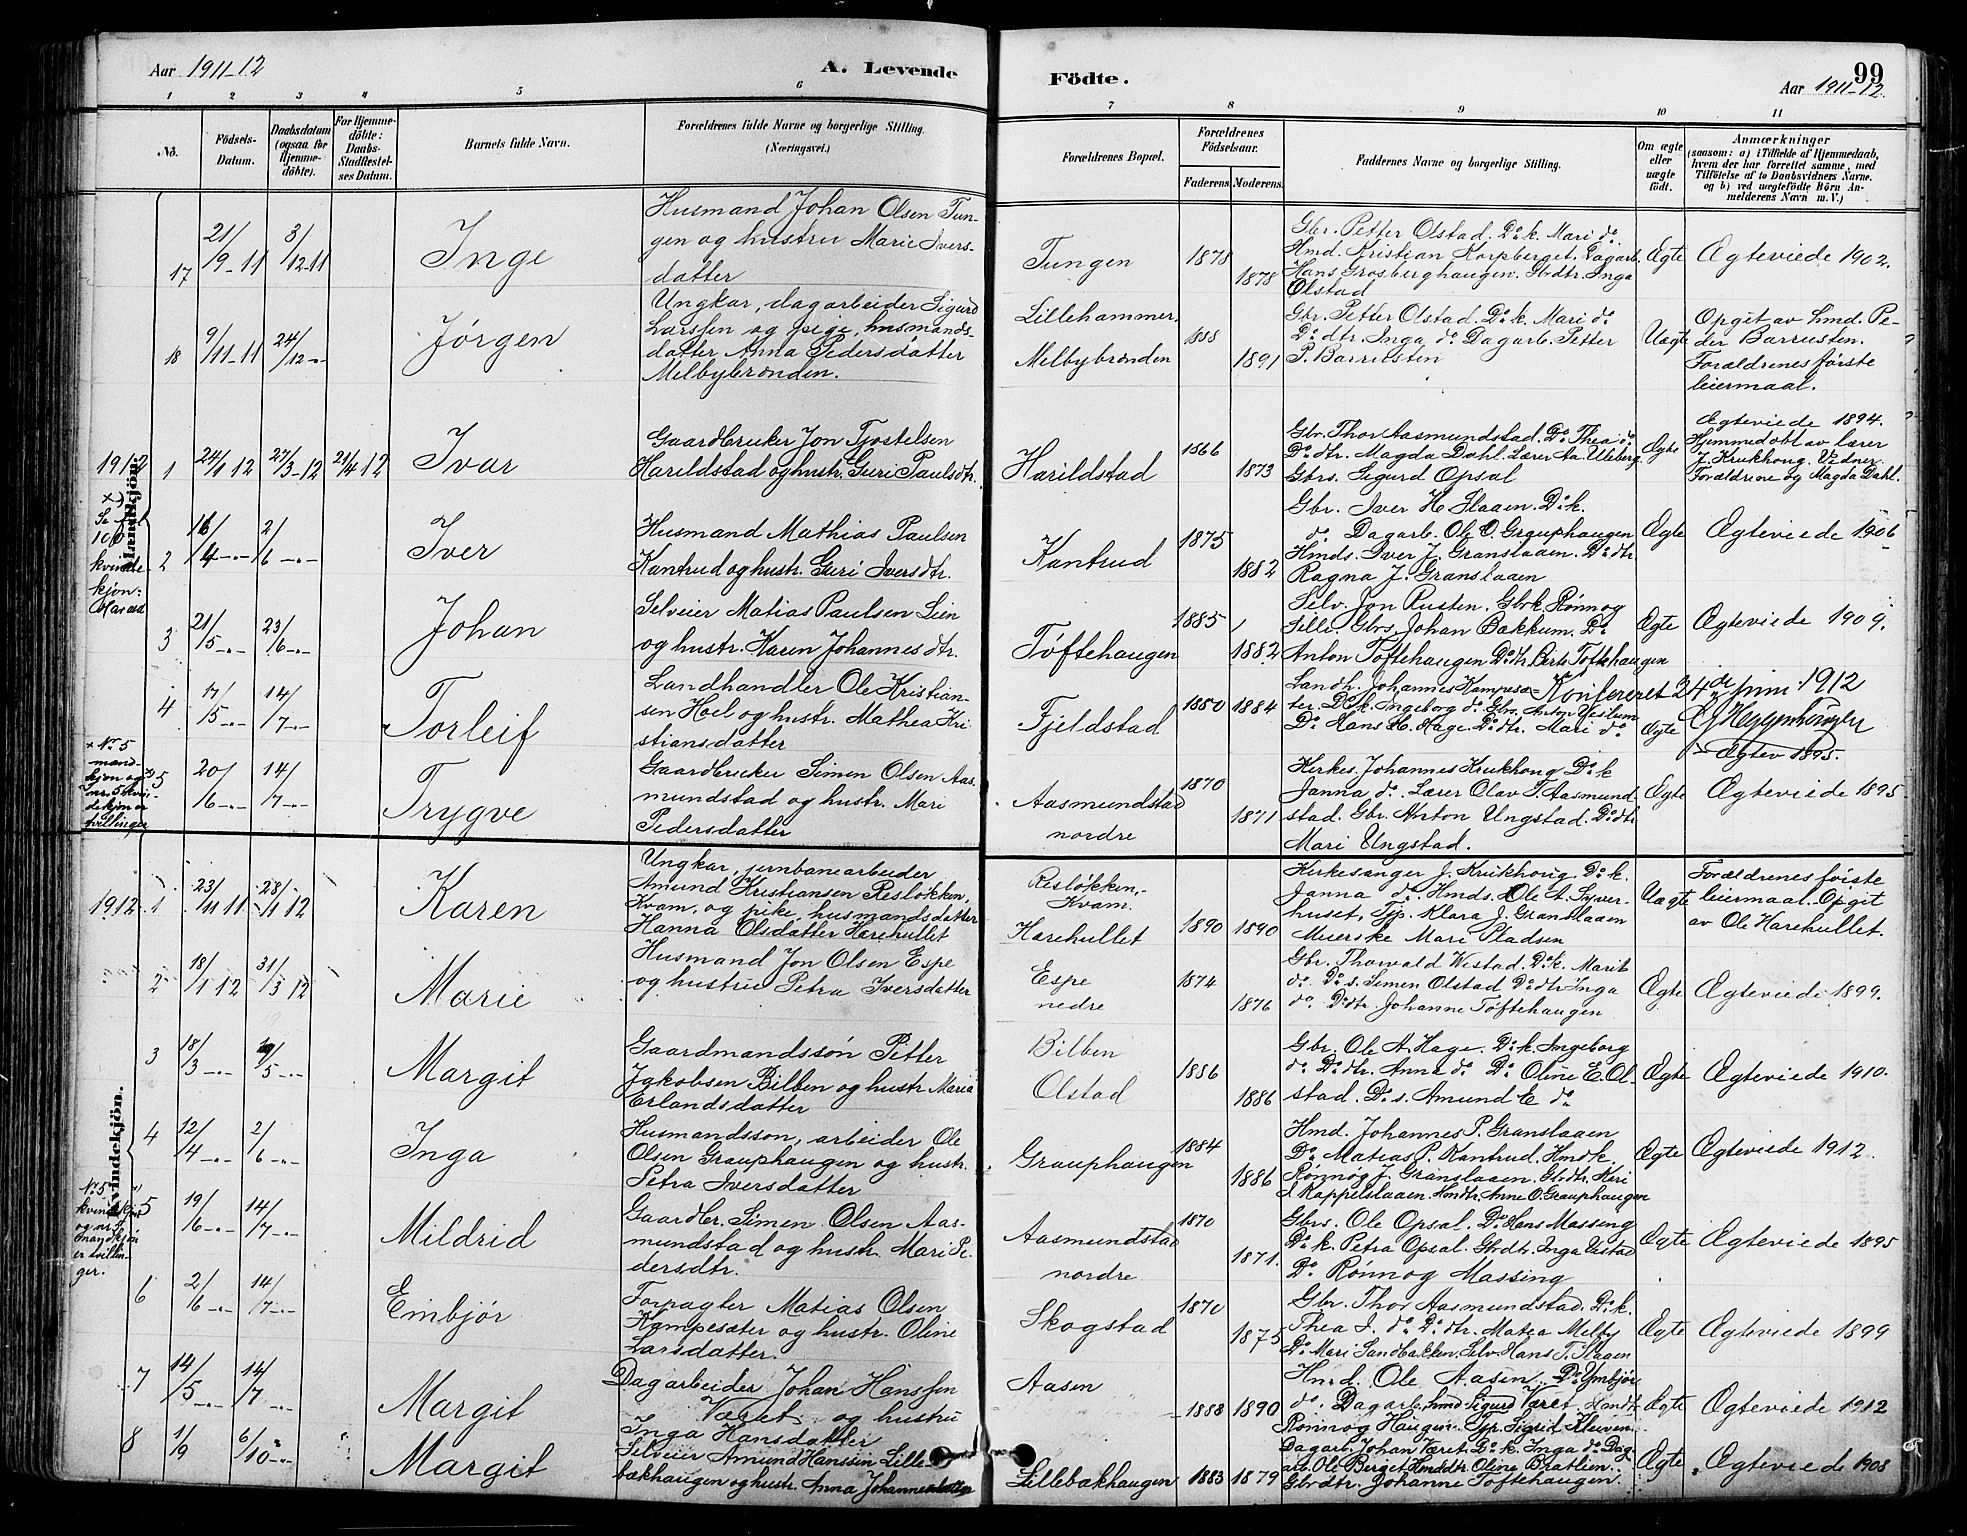 Aar 1911-12
A. Levende
Födte.
99
Aar 1911-12.
1 2 3 4 5 6 7 8 9 10 11
No.
Födsels-
Datum.
Daabsdatum
(ogsaa for
Hjemme-
döbte).
For Hjemme-
döbte:
Daabs-
Stadfæstel-
ses Datum.
Barnets fulde Navn.
Forældrenes fulde Navne og borgerlige Stilling.
(Næringsvei.)
Forældrenes Bopæl.
Forældrenes
Födselsaar.
Faderens. Moderens.
Faddernes Navne og borgerlige Stilling.
Om ægte
eller
uægte
födt.
Anmærkninger
(saasom: a) i Tilfælde af Hjemmedaab,
hvem der har forrettet samme, med
Tilföielse af to Daabsvidners Navne.
og b) ved uægtefödte Börn An-
melderens Navn m. V.)
17
21/9-11
3/12-11
Inge
Husmand Johan Olsen Tun-
gen og hustru Marie Ivers-
datter
Tungen
1878
1878
Gbr. Petter Olstad. Do k. Mari do.
Hmd. Kristian Korpberget. Dagarb.
Hans Grosberghaugen. Gbrdtr. Inga
Olstad
Ægte
Ægteviede 1902.
18
9/11-11
24/12-"-
Jørgen
Ungkar, dagarbeider Sigurd
Larssen og pige, husmands-
datter Anna Pedersdatter
Melbybrænden.
Lillehammer.
Melbybrænden
1888
1891
Gbr. Petter Olstad. Do k. Mari do
Do dtr. Inga do Dagarb. Petter
P. Barrusten
Uægte
Opgit av hmd. Pe-
der Barrusten.
Forældrenes første
leiermaal.
1912
Mandkjön.
1
24/1 12
27/3-12
21/4 12
Ivar
Gaardbruker Jon Tjostelsen
Harildstad og hustr. Guri Paulsdtr.
Harildstad
1866
1873
Gbr. Thor Aasmundstad. Do Thea do
Do dtr. Magda Dahl. Lærer Aa. Uleberg.
Gbrs. Sigurd Opsal
Ægte
Ægteviede 1894.
Hjemmedøbt av lærer
J. Krukhoug. Vidner:
Forældrene og Magda Dahl.
2
16/4-"-
2/6-"-
Iver
Husmand Mathias Paulsen
Kantrud og hustr. Guri Iversdtr.
Kantrud
1875
1882
Gbr. Iver H. Slaaen. Do k.
do Dagarb. Ole O. Grauphaugen
Hmds. Iver J. Granslaaen. Do dtr
Ragna J. Granslaaen
Ægte
Ægteviede 1906
3
21/5-"-
23/6-"-
Johan
Selveier Matias Paulsen Lien
og hustr. Karen Johannesdtr.
Tøftehaugen
1885
1882
Selv. Jon Rusten. Gbrk. Rønnog
Selli. Gbrs. Johan Bakkum. Do
Anton Tøftehaugen Do dtr. Berte Tøftehaugen
Ægte
Ægteviede 1909.
4
17/5-"-
14/7-"-
Torleif
Landhandler Ole Kristian-
sen Hoel og hustr. Mathea Kri
stiansdatter
Fjeldstad
1850
1884
Landh. Johannes Kampesæ-
ter Do k. Ingeborg do. Gbrs. Anton Veslum
Do Hans H. Hage. Do dtr. Mari do
Konfereret 24de juni 1912
Ægte
Ægtev 1895.
× No. 5
mand-
kjøn og
nr. 5 kvin-
dekjøn er
tvillinger
5
20/6-"-
14/7-"-
Trygve
Gaardbruker Simen Olsen Aas-
mundstad og hustr. Mari
Pedersdatter
Aasmundstad
nordre
1870
1871
Kirkes. Johannes Krukhoug Do k
Janna do. Lærer Olav T. Aasmund
stad. Gbr. Anton Ungstad. Do dtr
Mari Ungstad.
Ægte
Ægteviede 1895
1912
Kvindekjön.
1
23/11 11
28/1 12
Karen
Ungkar, jernbanearbeider
Amund Kristiansen Resløkken,
Kvam, og pike, husmandsdatter
Hanna Olsdatter Harehullet
Resløkken,
Kvam.
Harehullet
1890
1890
Kirkesanger J. Krukhoug. Do k.
Janna do. Hmds. Ole A. Syver-
huset. Tjp. Klara J. Granslaaen
Meierske Mari Pladsen
Uægte
Forældrenes første
leiermaal. Opgit
av Ole Harehullet.
2
18/1 12
31/3 12
Marie
Husmand Jon Olsen Espe
og hustru Petra Iversdatter
Espe
nedre
1874
1876
Gbr. Thorvald Vistad. Do k. Marit
do. Do s. Simen Olstad Do dtr Inga
do. Do dtr. Johanne Tøftehaugen
Ægte
Ægteviede 1899.
3
18/3-"-
/5-"-
Margit
Gaardmandssøn Petter
Jakobsen Bilben og hustr Maria
Erlandsdatter
Bilben
Olstad
1886
1886
Gbr. Ole A. Hage. Do k. Ingeborg
do Do dtr. Anna do. Do Oline E. Ol-
stad. Do s. Amund E do
Ægte
Ægteviede 1910.
4
12/4-"-
2/6-"-
Inga
Husmandssøn, arbeider Ole
Olsen Grauphaugen og hustr.
Petra Iversdatter
Grauphaugen
1884
1886
Hmd. Johannes P. Granslaaen
Do Matias P. Kantrud. Hmdk.
Rønnog J. Granslaaen. Gbrdtr. Kari
J. Kappelslaaen. Hmdtr. Anne O. Grauphaugen
Ægte
Ægteviede 1912.
No. 5
kvindekjøn
og nr. 5
mandkjøn
er tvillin-
ger.
5
19/6-"-
14/7-"-
Mildrid
Gaardbr. Simen Olsen Aas-
mundstad og hustr. Mari Pe-
dersdtr.
Aasmundstad
nordre
1870
1871.
Gbrs. Ole Opsal. Do Hans Massing
Do k. Petra Opsal. Gbrdtr. Inga Vistad
Do Rønnog Massing
Ægte
Ægteviede 1895
6
2/6-"-
14/7-"-
Embjør
Forpagter Matias Olsen
Kampesæter og hustr. Oline
Larsdatter.
Skogstad
1870
1875
Gbr. Thor Aasmundstad. Do k.
Thea I. do. Do dtr. Matea Melby
Do Mari Sandbakken. Selv. Hans T. Slaaen
Ægte
Ægteviede 1899
7
14/5-"-
14/7-"-
Margit
Dagarbeider Johan Hanssen
Været og hustru
Inga Hansdatter
Aasen
1888
1890
Hmd. Ole Aasen. Do Ymbjør
do. Dagarb. Sigurd Været. Hmdt.
Rønnog Haugen. Tjp. Sigrid
Ægte
Ægteviede 1912
8
1/9
6/10-"-
Margit
Selveier Amund Hanssen Lille
bækhaugen og hustr. Anna Johannesdatter
Lillebækhaugen
1883
1879
Dagarb. Johan Været. Do k. Inga do. Dag-
arb. Ole Berget. Hmddtr. Oline Brætlien.
Gbrdtr. Johanne Tøftehaugen.
Ægte
Ægteviede 1908